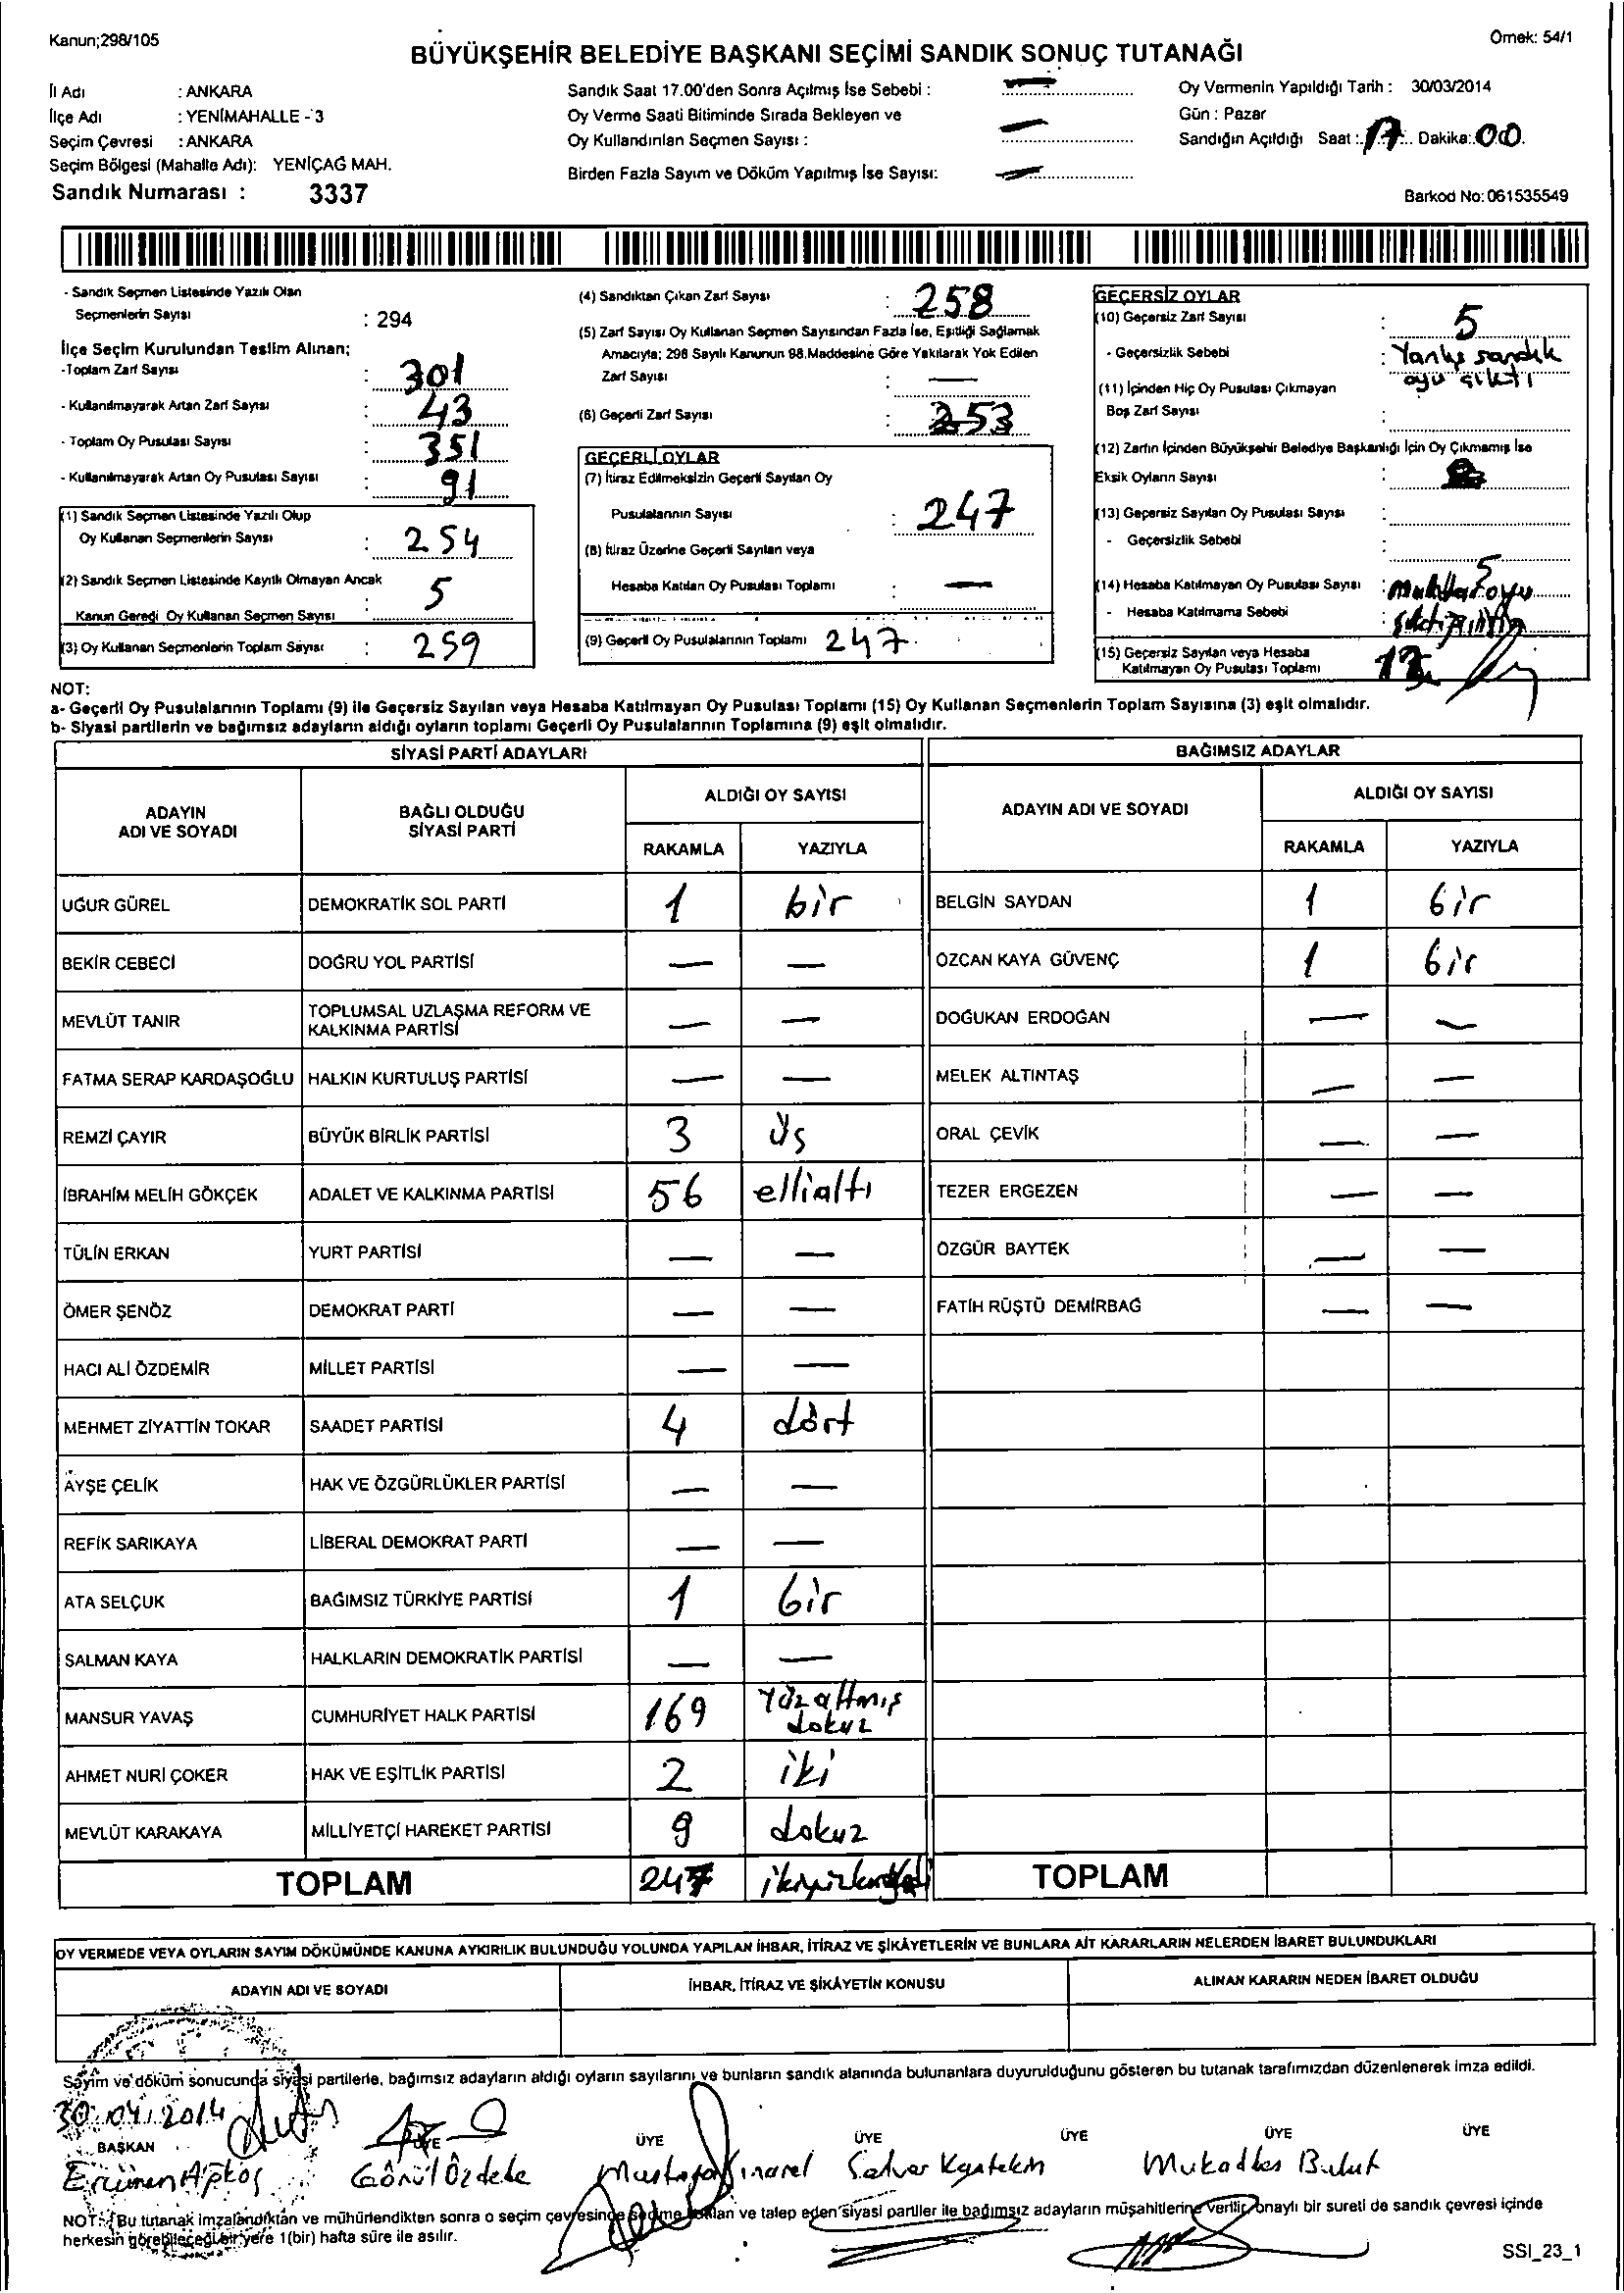 Kanun;298/105
Örnek: 54/1
BÜYÜKŞEHİR BELEDİYE BAŞKANI SEÇİMİ SANDIK SONUÇ TUTANAĞI
İl Adı : ANKARA
İlçe Adı : YENİMAHALLE - 3
Seçim Çevresi : ANKARA
Seçim Bölgesi (Mahalle Adı): YENİÇAĞ MAH.
Sandık Numarası : 3337
Sandık Saat 17.00'den Sonra Açılmış İse Sebebi : —
Oy Verme Saati Bitiminde Sırada Bekleyen ve
Oy Kullandırılan Seçmen Sayısı : —
Birden Fazla Sayım ve Döküm Yapılmış İse Sayısı: —
Oy Vermenin Yapıldığı Tarih : 30/03/2014
Gün : Pazar
Sandığın Açıldığı Saat : 17 Dakika: 00
Barkod No: 061535549
- Sandık Seçmen Listesinde Yazılı Olan
Seçmenlerin Sayısı : 294
İlçe Seçim Kurulundan Teslim Alınan;
-Toplam Zarf Sayısı : 301
- Kullanılmayarak Artan Zarf Sayısı : 43
- Toplam Oy Pusulası Sayısı : 351
- Kullanılmayarak Artan Oy Pusulası Sayısı : 91
(1) Sandık Seçmen Listesinde Yazılı Olup
Oy Kullanan Seçmenlerin Sayısı : 254
(2) Sandık Seçmen Listesinde Kayıtlı Olmayan Ancak
Kanun Geredi Oy Kullanan Seçmen Sayısı : 5
(3) Oy Kullanan Seçmenlerin Toplam Sayısı : 259
(4) Sandıktan Çıkan Zarf Sayısı : 258
(5) Zarf Sayısı Oy Kullanan Seçmen Sayısından Fazla İse, Eşitliği Sağlamak
Amacıyla; 298 Sayılı Kanunun 98.Maddesine Göre Yakılarak Yok Edilen
Zarf Sayısı : —
(6) Geçerli Zarf Sayısı : 253
GEÇERLİ OYLAR
(7) İtiraz Edilmeksizin Geçerli Sayılan Oy
Pusulalarının Sayısı : 247
(8) İtiraz Üzerine Geçerli Sayılan veya
Hesaba Katılan Oy Pusulası Toplamı : —
(9) Geçerli Oy Pusulalarının Toplamı 247
GEÇERSİZ OYLAR
(10) Geçersiz Zarf Sayısı : 5
- Geçersizlik Sebebi : Yanlış sandık
oyu çıktı
(11) İçinden Hiç Oy Pusulası Çıkmayan
Boş Zarf Sayısı :
(12) Zarfın İçinden Büyükşehir Belediye Başkanlığı İçin Oy Çıkmamış İse
Eksik Oyların Sayısı :
(13) Geçersiz Sayılan Oy Pusulası Sayısı :
- Geçersizlik Sebebi :
(14) Hesaba Katılmayan Oy Pusulası Sayısı : 5
- Hesaba Katılmama Sebebi :
(15) Geçersiz Sayılan veya Hesaba
Katılmayan Oy Pusulası Toplamı
NOT:
a- Geçerli Oy Pusulalarının Toplamı (9) ile Geçersiz Sayılan veya Hesaba Katılmayan Oy Pusulası Toplamı (15) Oy Kullanan Seçmenlerin Toplam Sayısına (3) eşit olmalıdır.
b- Siyasi partilerin ve bağımsız adayların aldığı oyların toplamı Geçerli Oy Pusulalarının Toplamına (9) eşit olmalıdır.
SİYASİ PARTİ ADAYLARI
ADAYIN ADI VE SOYADI BAĞLI OLDUĞU SİYASİ PARTİ ALDIĞI OY SAYISI
RAKAMLA YAZIYLA
UĞUR GÜREL DEMOKRATİK SOL PARTİ 1 bir
BEKİR CEBECİ DOĞRU YOL PARTİSİ — —
MEVLÜT TANIR TOPLUMSAL UZLAŞMA REFORM VE KALKINMA PARTİSİ — —
FATMA SERAP KARDAŞOĞLU HALKIN KURTULUŞ PARTİSİ — —
REMZİ ÇAYIR BÜYÜK BİRLİK PARTİSİ 3 üç
İBRAHİM MELİH GÖKÇEK ADALET VE KALKINMA PARTİSİ 56 ellialtı
TÜLİN ERKAN YURT PARTİSİ — —
ÖMER ŞENÖZ DEMOKRAT PARTİ — —
HACI ALİ ÖZDEMİR MİLLET PARTİSİ — —
MEHMET ZİYATTİN TOKAR SAADET PARTİSİ 4 dört
AYŞE ÇELİK HAK VE ÖZGÜRLÜKLER PARTİSİ — —
REFİK SARIKAYA LİBERAL DEMOKRAT PARTİ — —
ATA SELÇUK BAĞIMSIZ TÜRKİYE PARTİSİ 1 bir
SALMAN KAYA HALKLARIN DEMOKRATİK PARTİSİ — —
MANSUR YAVAŞ CUMHURİYET HALK PARTİSİ 169 Yüzaltmış dokuz
AHMET NURİ ÇOKER HAK VE EŞİTLİK PARTİSİ 2 iki
MEVLÜT KARAKAYA MİLLİYETÇİ HAREKET PARTİSİ 9 dokuz
TOPLAM 247
BAĞIMSIZ ADAYLAR
ADAYIN ADI VE SOYADI ALDIĞI OY SAYISI
RAKAMLA YAZIYLA
BELGİN SAYDAN 1 bir
ÖZCAN KAYA GÜVENÇ 1 bir
DOĞUKAN ERDOĞAN — —
MELEK ALTINTAŞ — —
ORAL ÇEVİK — —
TEZER ERGEZEN — —
ÖZGÜR BAYTEK — —
FATİH RÜŞTÜ DEMİRBAĞ — —
TOPLAM
OY VERMEDE VEYA OYLARIN SAYIM DÖKÜMÜNDE KANUNA AYKIRILIK BULUNDUĞU YOLUNDA YAPILAN İHBAR, İTİRAZ VE ŞİKÂYETLERİN VE BUNLARA AİT KARARLARIN NELERDEN İBARET BULUNDUKLARI
ADAYIN ADI VE SOYADI İHBAR, İTİRAZ VE ŞİKÂYETİN KONUSU ALINAN KARARIN NEDEN İBARET OLDUĞU
Sayım ve döküm sonucunda siyasi partilerle, bağımsız adayların aldığı oyların sayılarını ve bunların sandık alanında bulunanlara duyurulduğunu gösteren bu tutanak tarafımızdan düzenlenerek imza edildi.
30.04.2014
BAŞKAN ÜYE ÜYE ÜYE ÜYE ÜYE ÜYE
Gönül Özdede Mustafa Mukaddes Bulut
NOT: Bu tutanak imzalandıktan ve mühürlendikten sonra o seçim çevresinde seçime katılan ve talep eden siyasi partiler ile bağımsız adayların müşahitlerine verilir, onaylı bir sureti de sandık çevresi içinde
herkesin görebileceği bir yere 1(bir) hafta süre ile asılır.
SSI_23_1